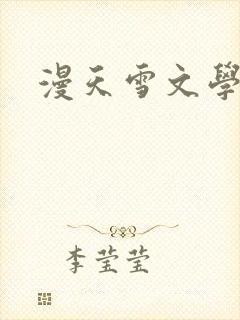 漫天雪文學
李莹莹